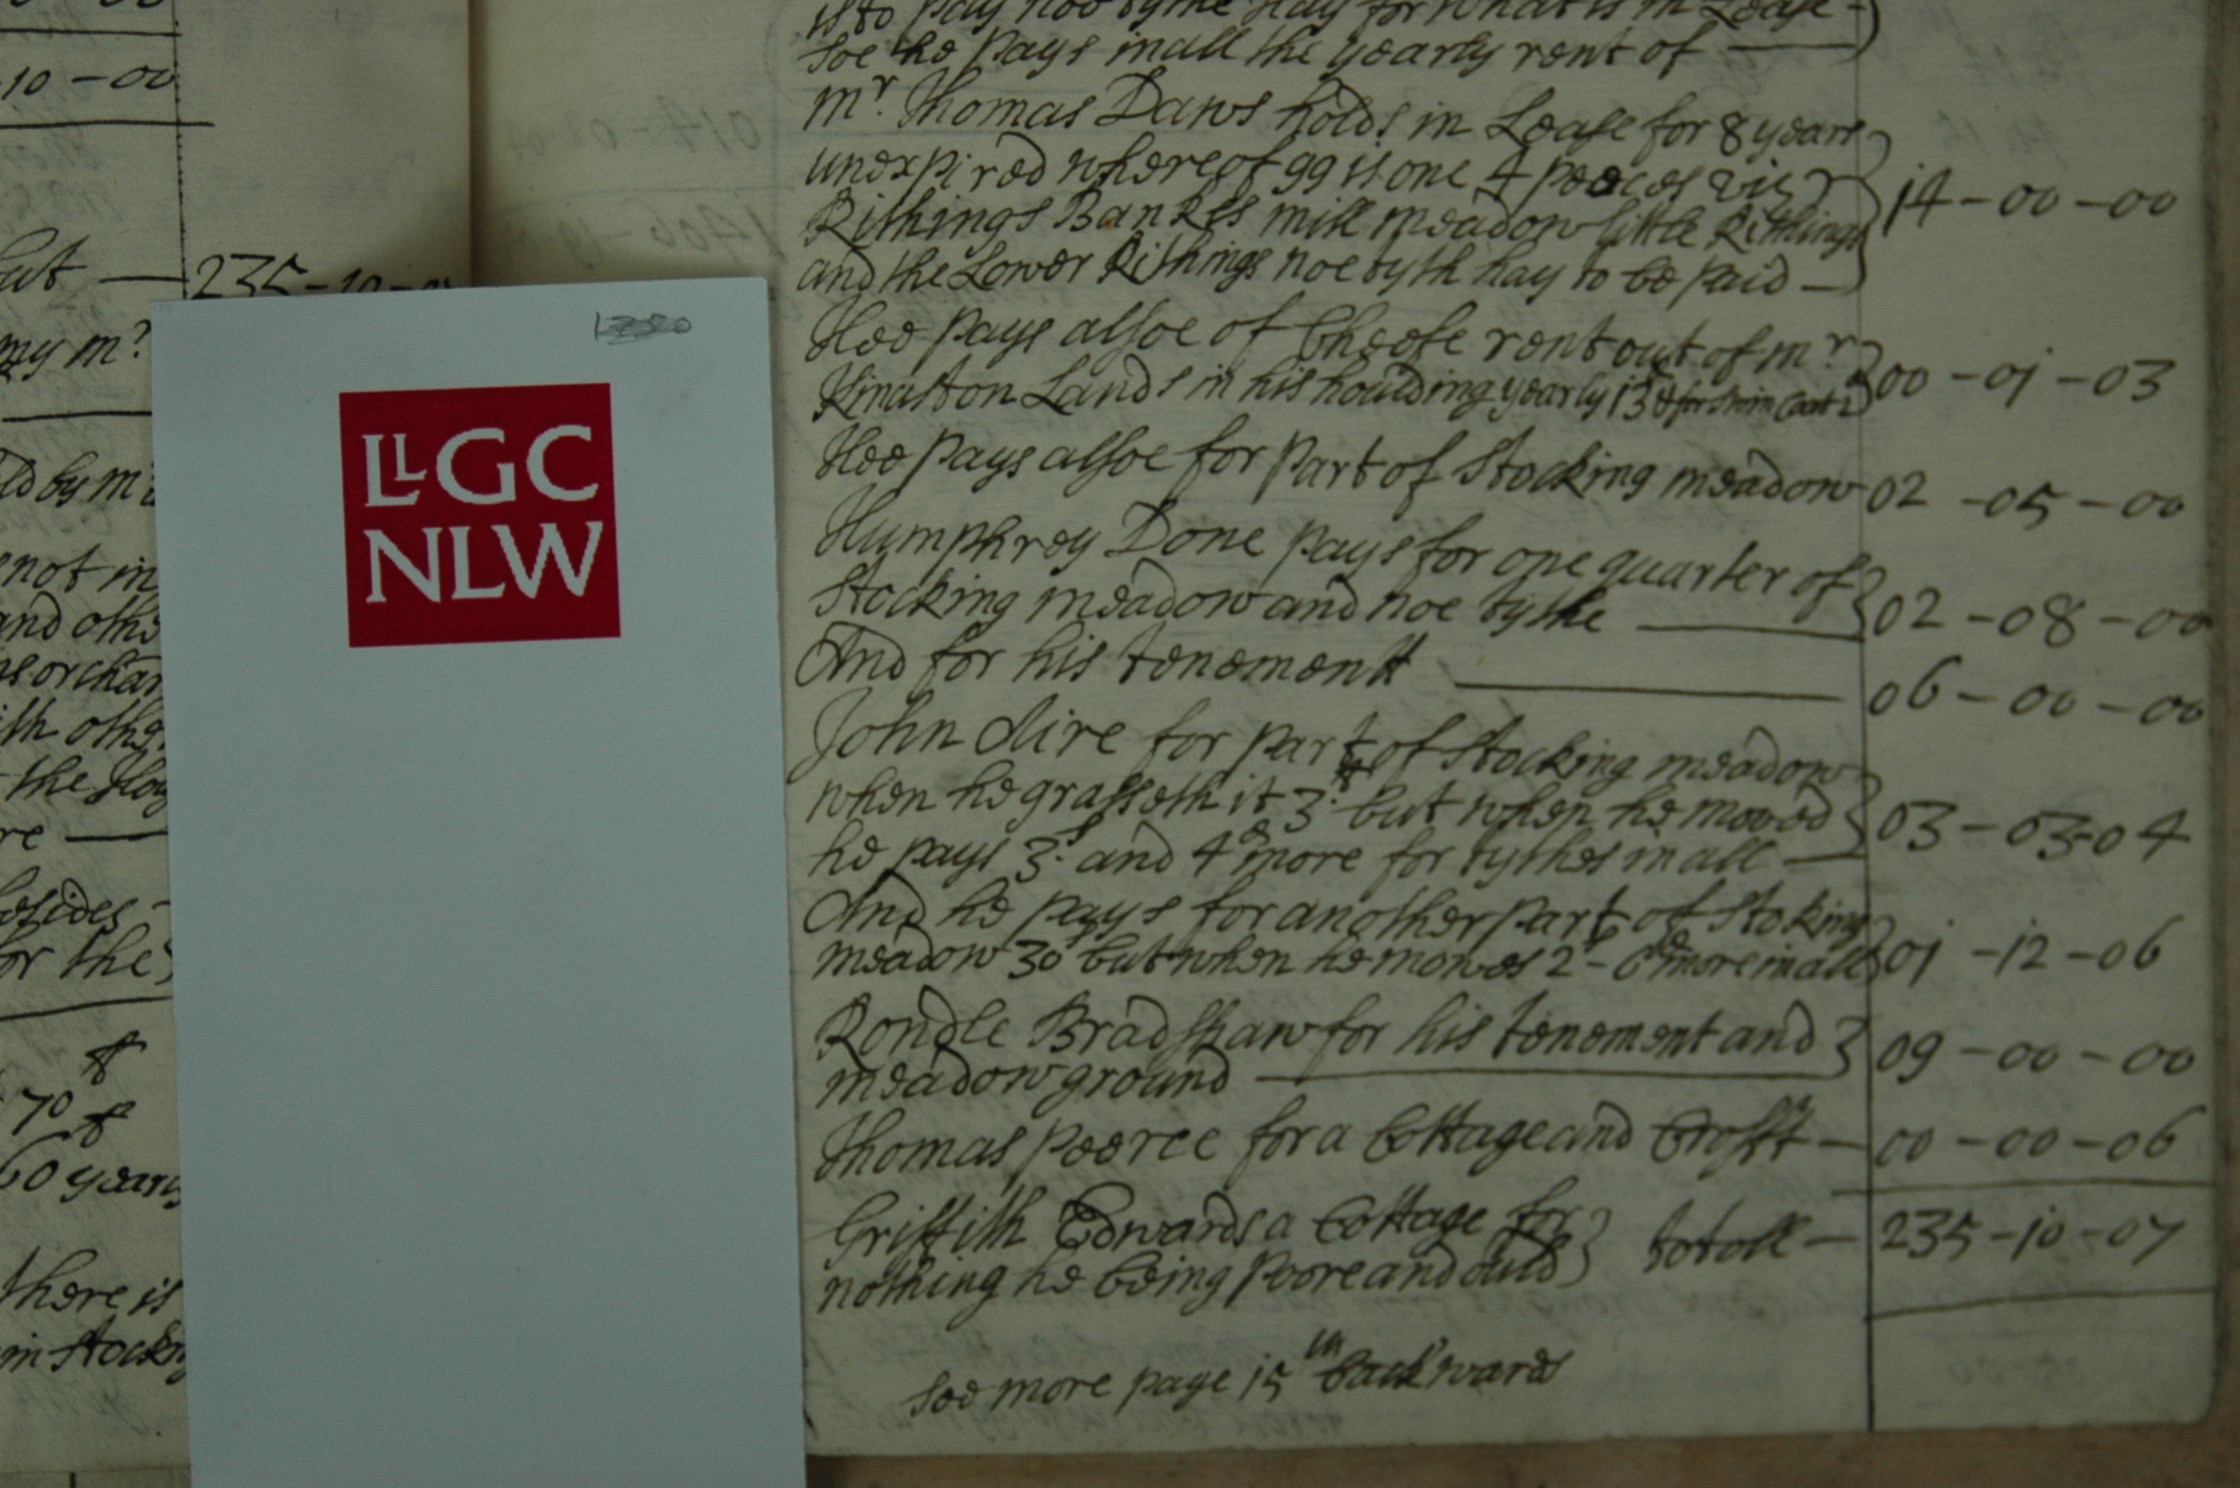 00 - 00
10 - 00
but — 235 - 10 - 0
my mr
ld by mr
not in
and othe
ns orchar
ith other
the Hay
re —
besides -
for the
70
60 years
there is
in stocking
LLGC
NLW
is to pay noe tythe Hay for what is in Lease -
soe he pays in all the yearly rent of —
mr. Thomas Daws holds in Lease for 8 years
unexpired whereof 99 is one 4 peeces viz } 14 - 00 - 00
Rithings Bankes mill meadow little Rithings
and the Lower Rithings noe tyth hay to be paid —
Hee pays alsoe of Cheefe rent out of mr
Kinaston Lands in his houlding yearly 15d for } 00 - 01 - 03
Hee pays alsoe for part of Stocking meadow 02 - 05 - 00
Humphrey Done pays for one quarter of
Stocking meadow and noe tythe — } 02 - 08 - 00
And for his tenement — 06 - 00 - 00
John dire for part of Stocking meadow
when he grasseth it 3l but when he moved } 03 - 03 - 04
he pays 3s and 4d more for tythes in all —
And he pays for another part of Stoking
meadow 30s but when he mowes 2s - 6d more in all } 01 - 12 - 06
Rondle Bradshaw for his tenement and } 09 - 00 - 00
meadow ground —
Thomas Peerce for a Cottage and Crofft — 00 - 00 - 06
Griffith Edwards a Cottage for } totall — 235 - 10 - 07
nothing he being poore and ould
See more page 15th backward